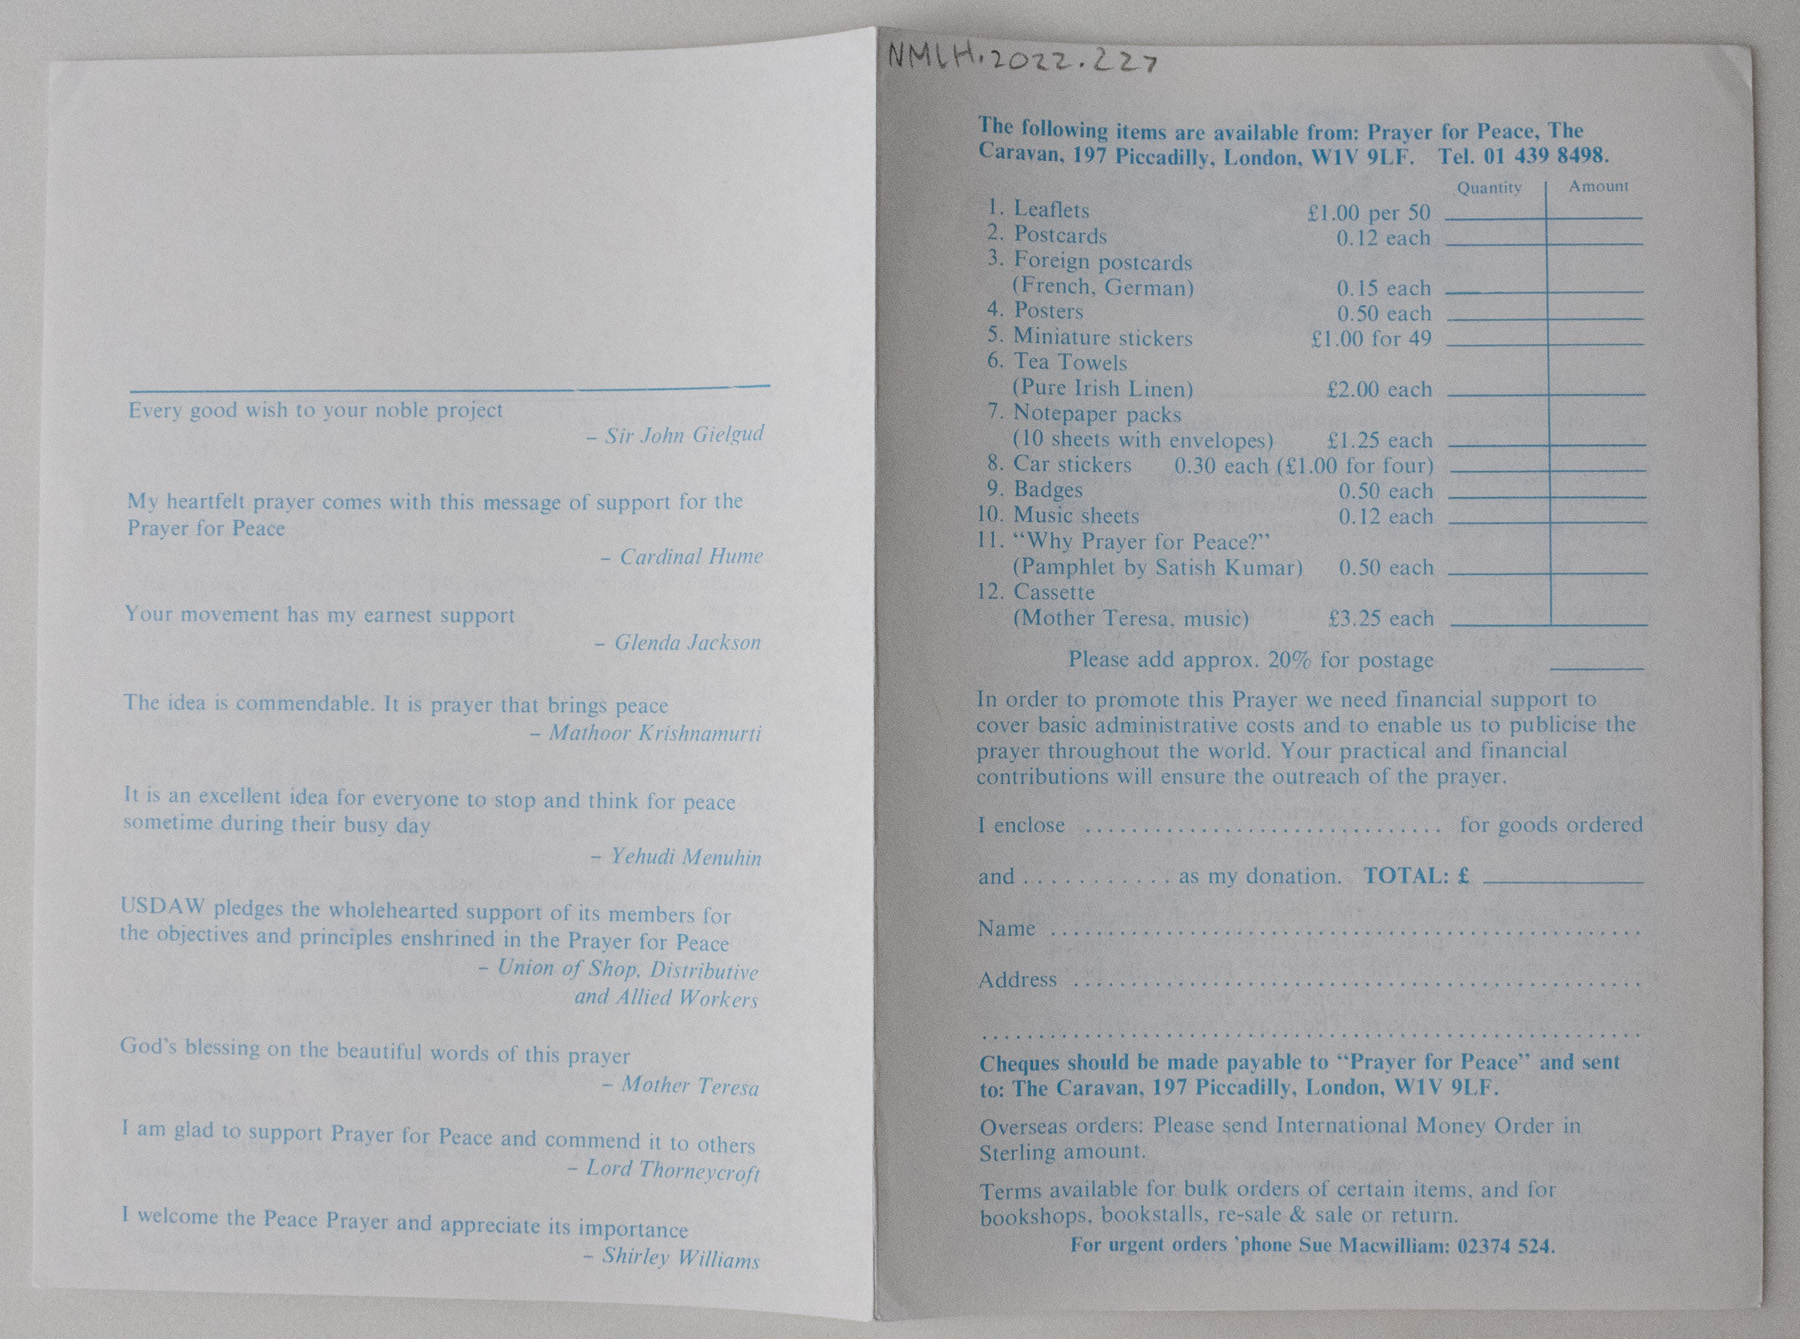 Every good wish to your noble project
– Sir John Gielgud
My heartfelt prayer comes with this message of support for the
Prayer for Peace
– Cardinal Hume
Your movement has my earnest support
– Glenda Jackson
The idea is commendable. It is prayer that brings peace
– Mathoor Krishnamurti
It is an excellent idea for everyone to stop and think for peace
sometime during their busy day
– Yehudi Menuhin
USDAW pledges the wholehearted support of its members for
the objectives and principles enshrined in the Prayer for Peace
– Union of Shop, Distributive
and Allied Workers
God's blessing on the beautiful words of this prayer
– Mother Teresa
I am glad to support Prayer for Peace and commend it to others
– Lord Thorneycroft
I welcome the Peace Prayer and appreciate its importance
– Shirley Williams
NMLH.2022.227
The following items are available from: Prayer for Peace, The
Caravan, 197 Piccadilly, London, W1V 9LF. Tel. 01 439 8498.
Quantity Amount
1. Leaflets £1.00 per 50
2. Postcards 0.12 each
3. Foreign postcards
(French, German) 0.15 each
4. Posters 0.50 each
5. Miniature stickers £1.00 for 49
6. Tea Towels
(Pure Irish Linen) £2.00 each
7. Notepaper packs
(10 sheets with envelopes) £1.25 each
8. Car stickers 0.30 each (£1.00 for four)
9. Badges 0.50 each
10. Music sheets 0.12 each
11. “Why Prayer for Peace?”
(Pamphlet by Satish Kumar) 0.50 each
12. Cassette
(Mother Teresa, music) £3.25 each
Please add approx. 20% for postage
In order to promote this Prayer we need financial support to
cover basic administrative costs and to enable us to publicise the
prayer throughout the world. Your practical and financial
contributions will ensure the outreach of the prayer.
I enclose ............................... for goods ordered
and ............ as my donation. TOTAL: £
Name ....................................................
Address ..................................................
..........................................................
Cheques should be made payable to “Prayer for Peace” and sent
to: The Caravan, 197 Piccadilly, London, W1V 9LF.
Overseas orders: Please send International Money Order in
Sterling amount.
Terms available for bulk orders of certain items, and for
bookshops, bookstalls, re-sale & sale or return.
For urgent orders 'phone Sue Macwilliam: 02374 524.